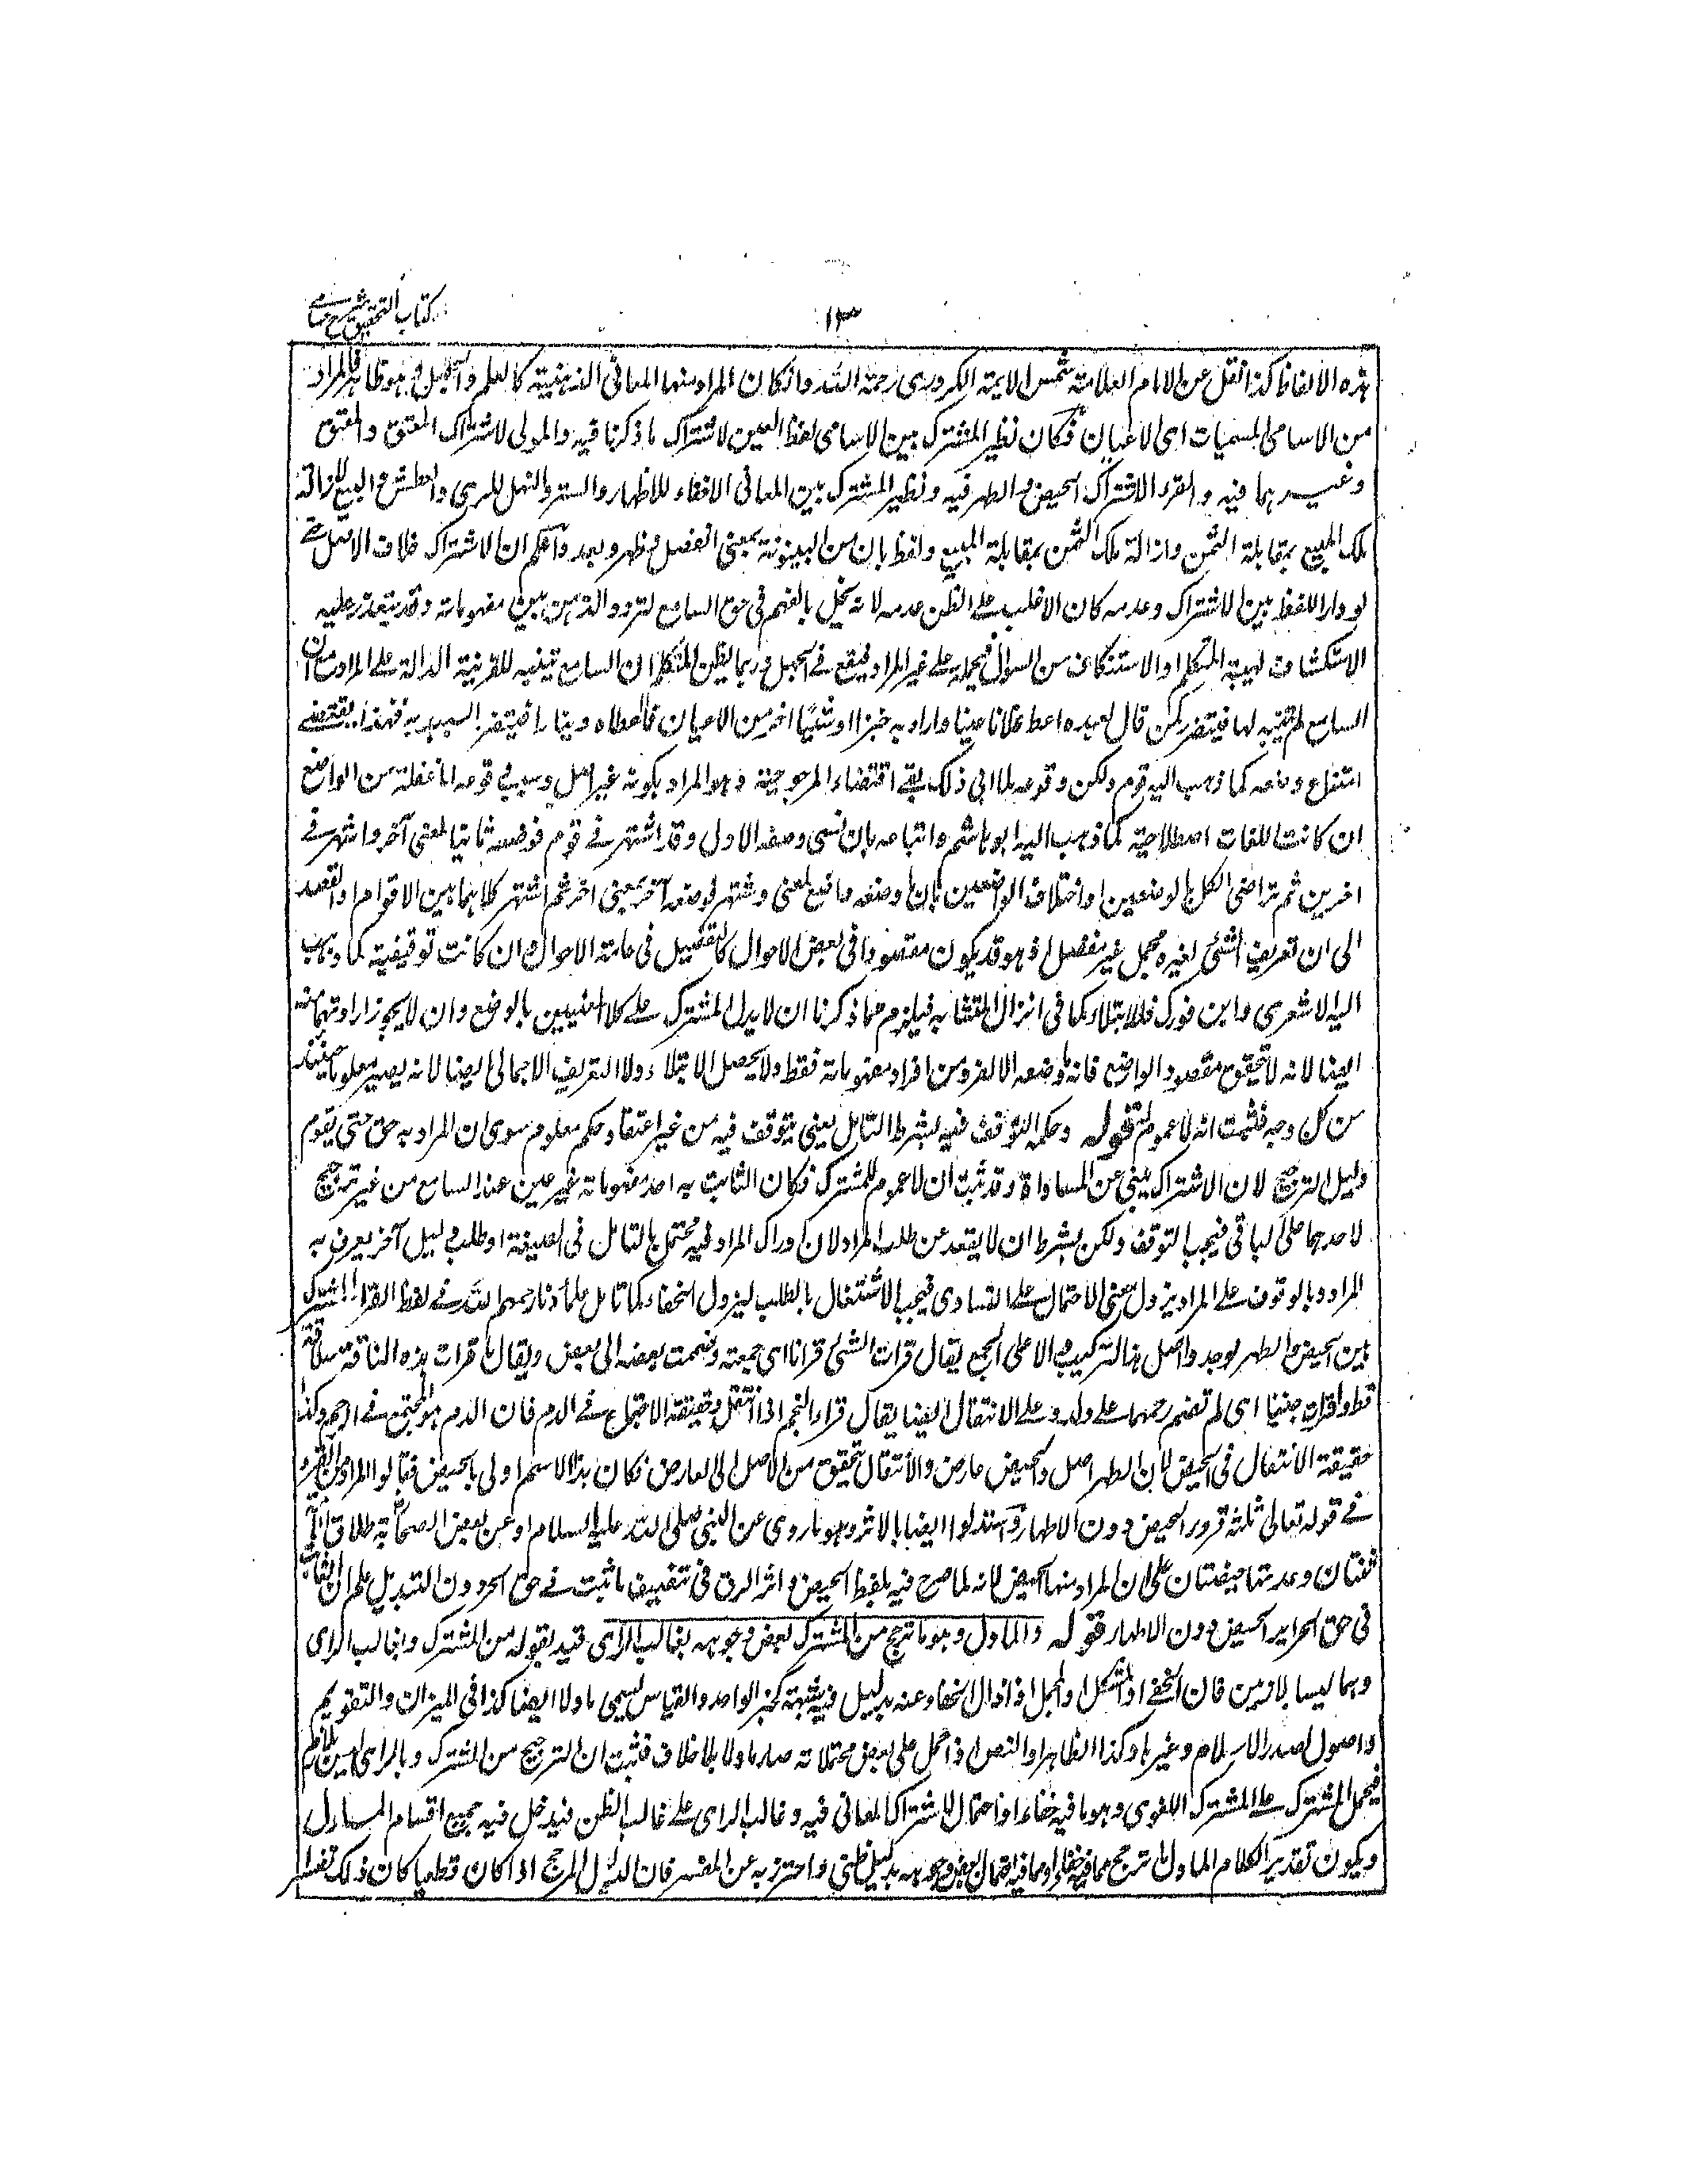 كتاب التحقيق شرح حسامي
١٣
هذه الالفاظ كذا نقل عن الامام العلامة شمس الايمة الكردرى رحمة الله وان كان المراد منها المعانى الذهنية كالعلم والجهل فهو ظاهر فالمراد
من الاسامى المسميات اى الاعيان فكان نظير المشترك بين الاسامى لفظ العين لاشتراك ما ذكرنا فيه والمولى لاشتراك المعتق والمعتق
وغيرهما فيه والقرء لاشتراك الحيض والطهر فيه ونظير المشترك بين المعانى الاخفاء للاظهار والستر والنهل للرى والعطش والبيع لازالة
ملك المبيع بمقابلة الثمن وازالة ملك الثمن بمقابلة المبيع ولفظ بان من البينونة بمعنى انفصل وظهر وبعد واعلم ان الاشتراك خلاف الاصل حتى
لو دار اللفظ بين الاشتراك وعدمه كان الاغلب على الظن عدمه لانه يخل بالفهم فى حق السامع لتردد الذهن بين مفهوماته وقد يتعذر عليه
الاستكشاف لهيبة المتكلم او الاستنكاف من السؤال فيحمله على غير المراد فيقع فى الجهل وربما يظن المتكلم ان السامع تنبه للقرينة الدالة على المراد مع ان
السامع لم يتنبه لها فيتضرر كمن قال لعبده اعط فلانا عينا واراد به خبزا او شيئا اخر من الاعيان فاعطاه دينارا فيتضرر السيد به فهذا يقتضى
امتناع وضعه كما ذهب اليه قوم ولكن وقوعه لما ابى ذلك بقى اقتضاء المرجوحية وهو المراد بكونه غير اصل وسبب وقوعه اما غفلة من الواضع
ان كانت اللغات اصطلاحية كما ذهب اليه ابو هاشم واتباعه بان نسى وضعه الاول وقد اشتهر فى قوم فوضعه ثانيا لمعنى آخر واشتهر فى
اخرين ثم تراضى الكل بالوضعين او اختلاف الواضعين بان وضعه واضع لمعنى واشتهر ووضعه آخر بمعنى اخر ثم اشتهر كلاهما بين الاقوام او القصد
الى ان تعريف الشئ لغيره مجمل غير مفصل اذ هو قد يكون مقصودا فى بعض الاحوال كالتفصيل فى عامة الاحوال وان كانت توقيفية كما ذهب
اليه الاشعرى وابن فورك فللابتلاء كما فى انزال المتشابه فيلزم مما ذكرنا ان لا يدل المشترك على كلا المعنيين بالوضع وان لا يجوز ارادتهما منه
ايضا لانه لا يتحقق مقصود الواضع فانه ما وضعه الا لفرد من افراد مفهوماته فقط ولا يحصل الابتلاء ولا التعريف الاجمالى ايضا لانه يصير معلوما حينئذ
من كل وجه فثبت انه لا عموم له قوله وحكمه التوقف فيه بشرط التامل يعنى يتوقف فيه من غير اعتقاد حكم معلوم سوى ان المراد به حق حتى يقوم
دليل الترجيح لان الاشتراك ينبئ عن المساواة وقد ثبت ان لا عموم للمشترك فكان الثابت به احد مفهوماته غير عين عند السامع من غير ترجيح
لاحدهما على الباقى فيجب التوقف ولكن بشرط ان لا يقعد عن طلب المراد لان ادراك المراد فيه محتمل بالتامل فى الصيغة او طلب دليل آخر يعرف به
المراد وبالوقوف على المراد يزول معنى الاحتمال على التساوى فيجب الاشتغال بالطلب ليزول الخفاء كما تامل علماؤنا رحمهم الله فى لفظ القرء المشترك
بين الحيض والطهر فوجدوا اصل هذا التركيب دالا على الجمع يقال قرات الشئ قرانا اى جمعته وضممت بعضه الى بعض ويقال ما قرات هذه الناقة سلاقة
قط وما قرات جنينا اى لم تضم رحمها على ولد وعلى الانتقال ايضا يقال قرا النجم اذا انتقل وحقيقة الاجتماع فى الدم فان الدم هو المجتمع فى الرحم وكذا
حقيقة الانتقال فى الحيض لان الطهر اصل والحيض عارض والانتقال يتحقق من الاصل الى العارض فكان هذا الاسم اولى بالحيض فقالوا المراد من القرء
فى قوله تعالى ثلثة قروء الحيض دون الاطهار واستدلوا ايضا بالاثر وهو ما روى عن النبى صلى الله عليه السلام او عن بعض الصحابة طلاق الامة
ثنتان وعدتها حيضتان على ان المراد منها الحيض لانه لما صرح فيه بلفظ الحيض واثر الرق فى تنصيف ما ثبت فى حق الحر دون التبديل علم ان الثابت
فى حق الحراير الحيض دون الاطهار قوله والماول وهو ما ترجح من المشترك بعض وجوهه بغالب الراى قيد بقوله من المشترك وبغالب الراى
وهما ليسا بلازمين فان الخفى او المشكل او المجمل اذا زال الخفاء عنه بدليل فيه شبهة كخبر الواحد والقياس يسمى ماولا ايضا كذا فى الميزان والتقويم
واصول صدر الاسلام وغيرها وكذا الظاهر او النص اذا حمل على بعض محتملاته صار ماولا بلا خلاف فثبت ان الترجيح من المشترك وبالراى ليس بلازم
فيحمل المشترك على المشترك اللغوى وهو ما فيه خفاء او احتمال لاشتراك المعانى فيه وغالب الراى على غالب الظن فيدخل فيه جميع اقسام الماول
ويكون تقدير الكلام الماول ما ترجح مما فيه خفاء او مما فيه احتمال بعض وجوهه بدليل ظنى واحترز به عن المفسر فان الدليل المرجح اذا كان قطعيا كان ذلك تفسيرا